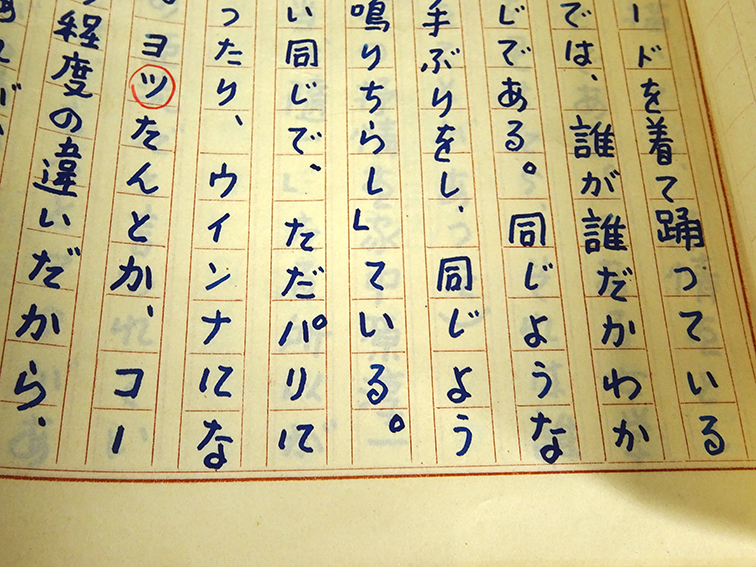 ードを着て踊っている
では、誰が誰だかわか
じである。同じような
手ぶりをし、同じよう
鳴りちらし」ている。
い同じで、ただパリに
ったり、ウインナにな
ヨツたんとか、コー
程度の違いだから、